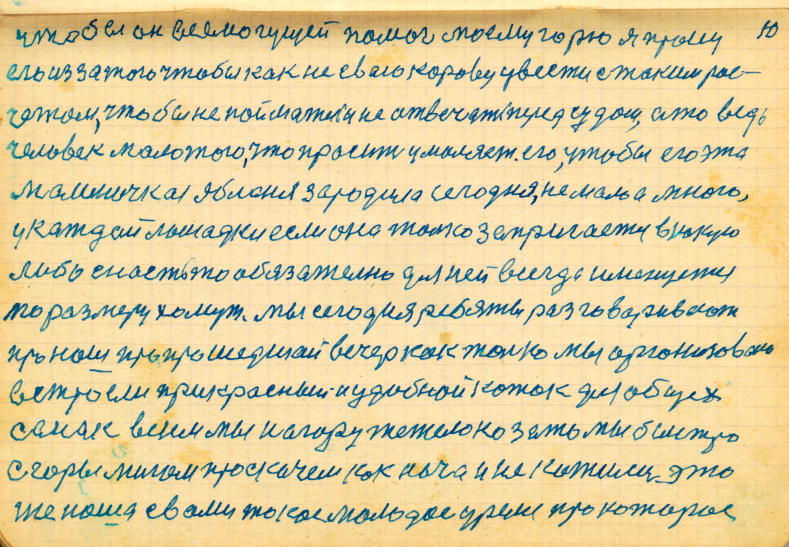 чтобы он всемогущей помог моему горю я прошу 10
его из за того чтобы как не свою корову увести с таким рос-
чотом, чтобы не поймати и не отвечать перед судом, а то ведь
человек мало того, что просит умоляет. его, чтобы его эта
мамничкая яблоня зародила сегодня, не мало а много,
у каждай лошадки если она только запрягается в какую
либо снасть то обязателно для ней всегда имеюется
по размеру хомут. мы сегодня ребяты разговариваем
про наш пропрошедшай вечер как только мы организовано
встроели прикрасный и удобной коток для общех
санак везем мы на гору тежело но зато мы быстро
с горы мигом проскачем как ноча и не котили. это
же наша с вами такое молодое время про которое